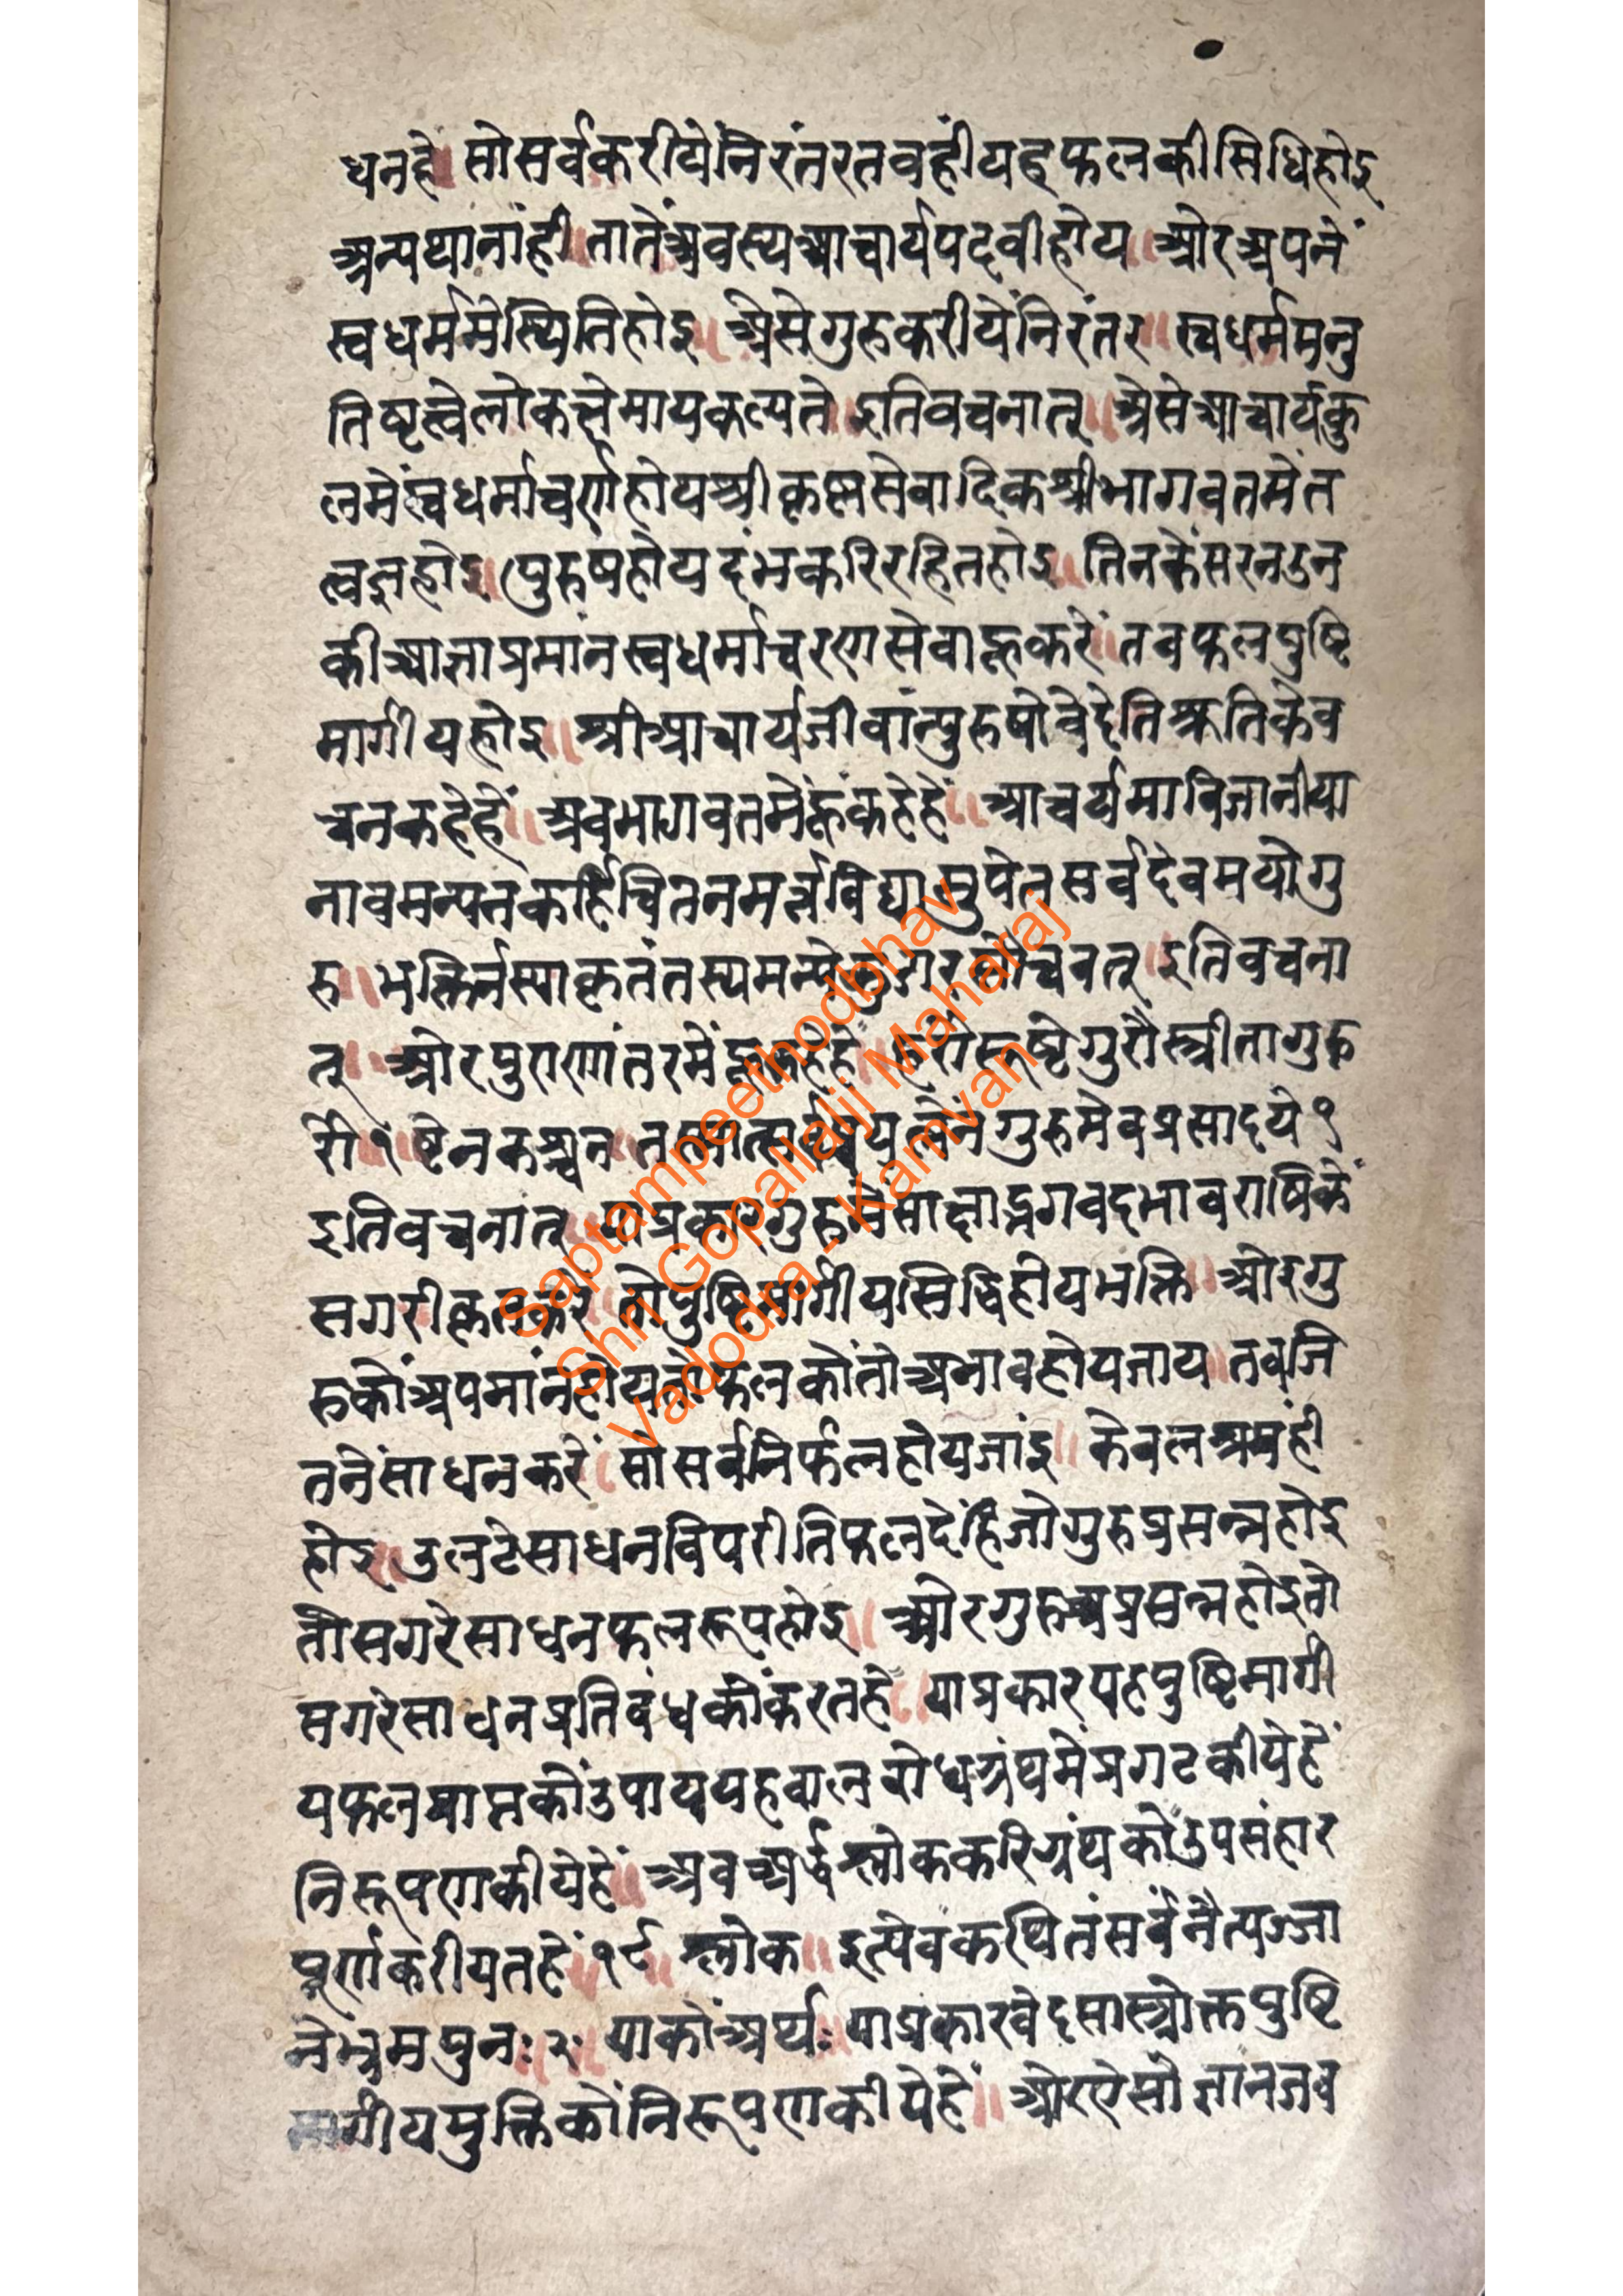 धनहे॥ सोसर्वकरीयेंनिरंतरतवहींयहफलकीसिधिहोइ
अन्यथानांही॥ तातेंअवस्यआचार्यपदवीहोय॥ ओरअपनें
स्वधर्ममेंस्थितिहोइ॥ अैसेगुरुकरीयेंनिरंतर॥ स्वधर्ममनु
तिष्टत्वेलोकत्क्षेमायकल्पते॥ इतिवचनात्॥ अैसेआचार्यकु
लमेंस्वधर्माचर्णहोयश्रीकृष्णसेवादिकश्रीभागवतमेंत
त्वज्ञहोइ॥ पुरुषहोयदंभकरिरहितहोइ॥ तिनकेंसरनउन
कीआज्ञाप्रमांनस्वधर्माचरणसेवाहूकरें॥ तबफलपुष्टि
मार्गीयहोइ॥ श्रीआचार्यजीवांन्पुरुषोवेदेतिश्रुतिकेव
चनकहेहें॥ अबभागवतमेंहूंकहेहें॥ आचर्यमाविजानीया
नावमन्यनकर्हिचितनमर्त्त्यविद्यासुपेतसर्वदेवमयोगु
रु॥ भक्तिर्नस्याकृतंतस्यमन्ये इतिवचना
त्॥ ओरपुराणांतरमेंहूकहेहे॥ हरोरूष्टेगुरौस्त्रीतागुरु
रौ रुष्टेनकश्चन॥ तस्मात्सर्व गुरुमेवप्रसादये१
इतिवचनांत्॥ याप्रकारगुरुमेंसाक्षाद्भगवदभावराषिकें
सगरीकृतकरें॥ तोपुष्टिमार्गीयसिद्धिहोयभक्ति॥ ओरगु
रुकोंअपमांनहोयतोफलकोंतोअभावहोयजाय॥ तबजि
तनेंसाधनकरें॥ सोसर्वनिर्फलहोयजांइ॥ केवलश्रमंही
होइ॥ उलटेसाधनविपरीतिफलदेंहिजोगुरुप्रसन्नहोइ
तौसगरेसाधनफलरूपहोइ॥ ओरगुरुअप्रसन्नहोइतो
सगरेसाधनप्रतिबंधकोंकरतहे॥ याप्रकारयहपुष्टिमार्गी
यफलप्राप्तकोंउपाययहबालबोधग्रंथमेंप्रगटकीयेहें
निरूपणकीयेहें॥ अबअर्द्धश्लोककरिग्रंथकोंउपसंहार
पूर्णकरीयतहें॥१८॥ श्लोक॥ इत्येवकथितंसर्वंनैत्यज्जा
नेभ्रमपुनः॥२॥ याकोंअर्थः॥ याप्रकारवेदसास्त्रोक्तपुष्टि
मार्गीयमुक्तिकोंनिरूपणकीयेहें॥ ओरऐसोज्ञानजब
Saptampeethodbhav
Shri Gopallalji Maharaj
Vadodra - Kamvan